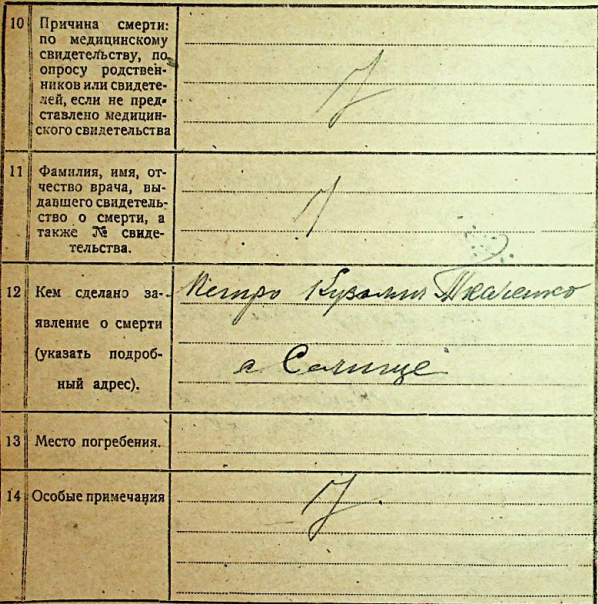 10 Причина смерти:
по медицинскому
свидетельству, по
опросу родствен-
ников или свидете-
лей, если не пред-
ставлено медицин-
ского свидетельства
11 Фамилия, имя, от-
чество врача, вы-
давшего свидетель-
ство о смерти, а
также № свиде-
тельства.
12 Кем сделано за-
явление о смерти
(указать подроб-
ный адрес).
Петро Кузьмич Ткаченко
с
13 Место погребения.
14 Особые примечания